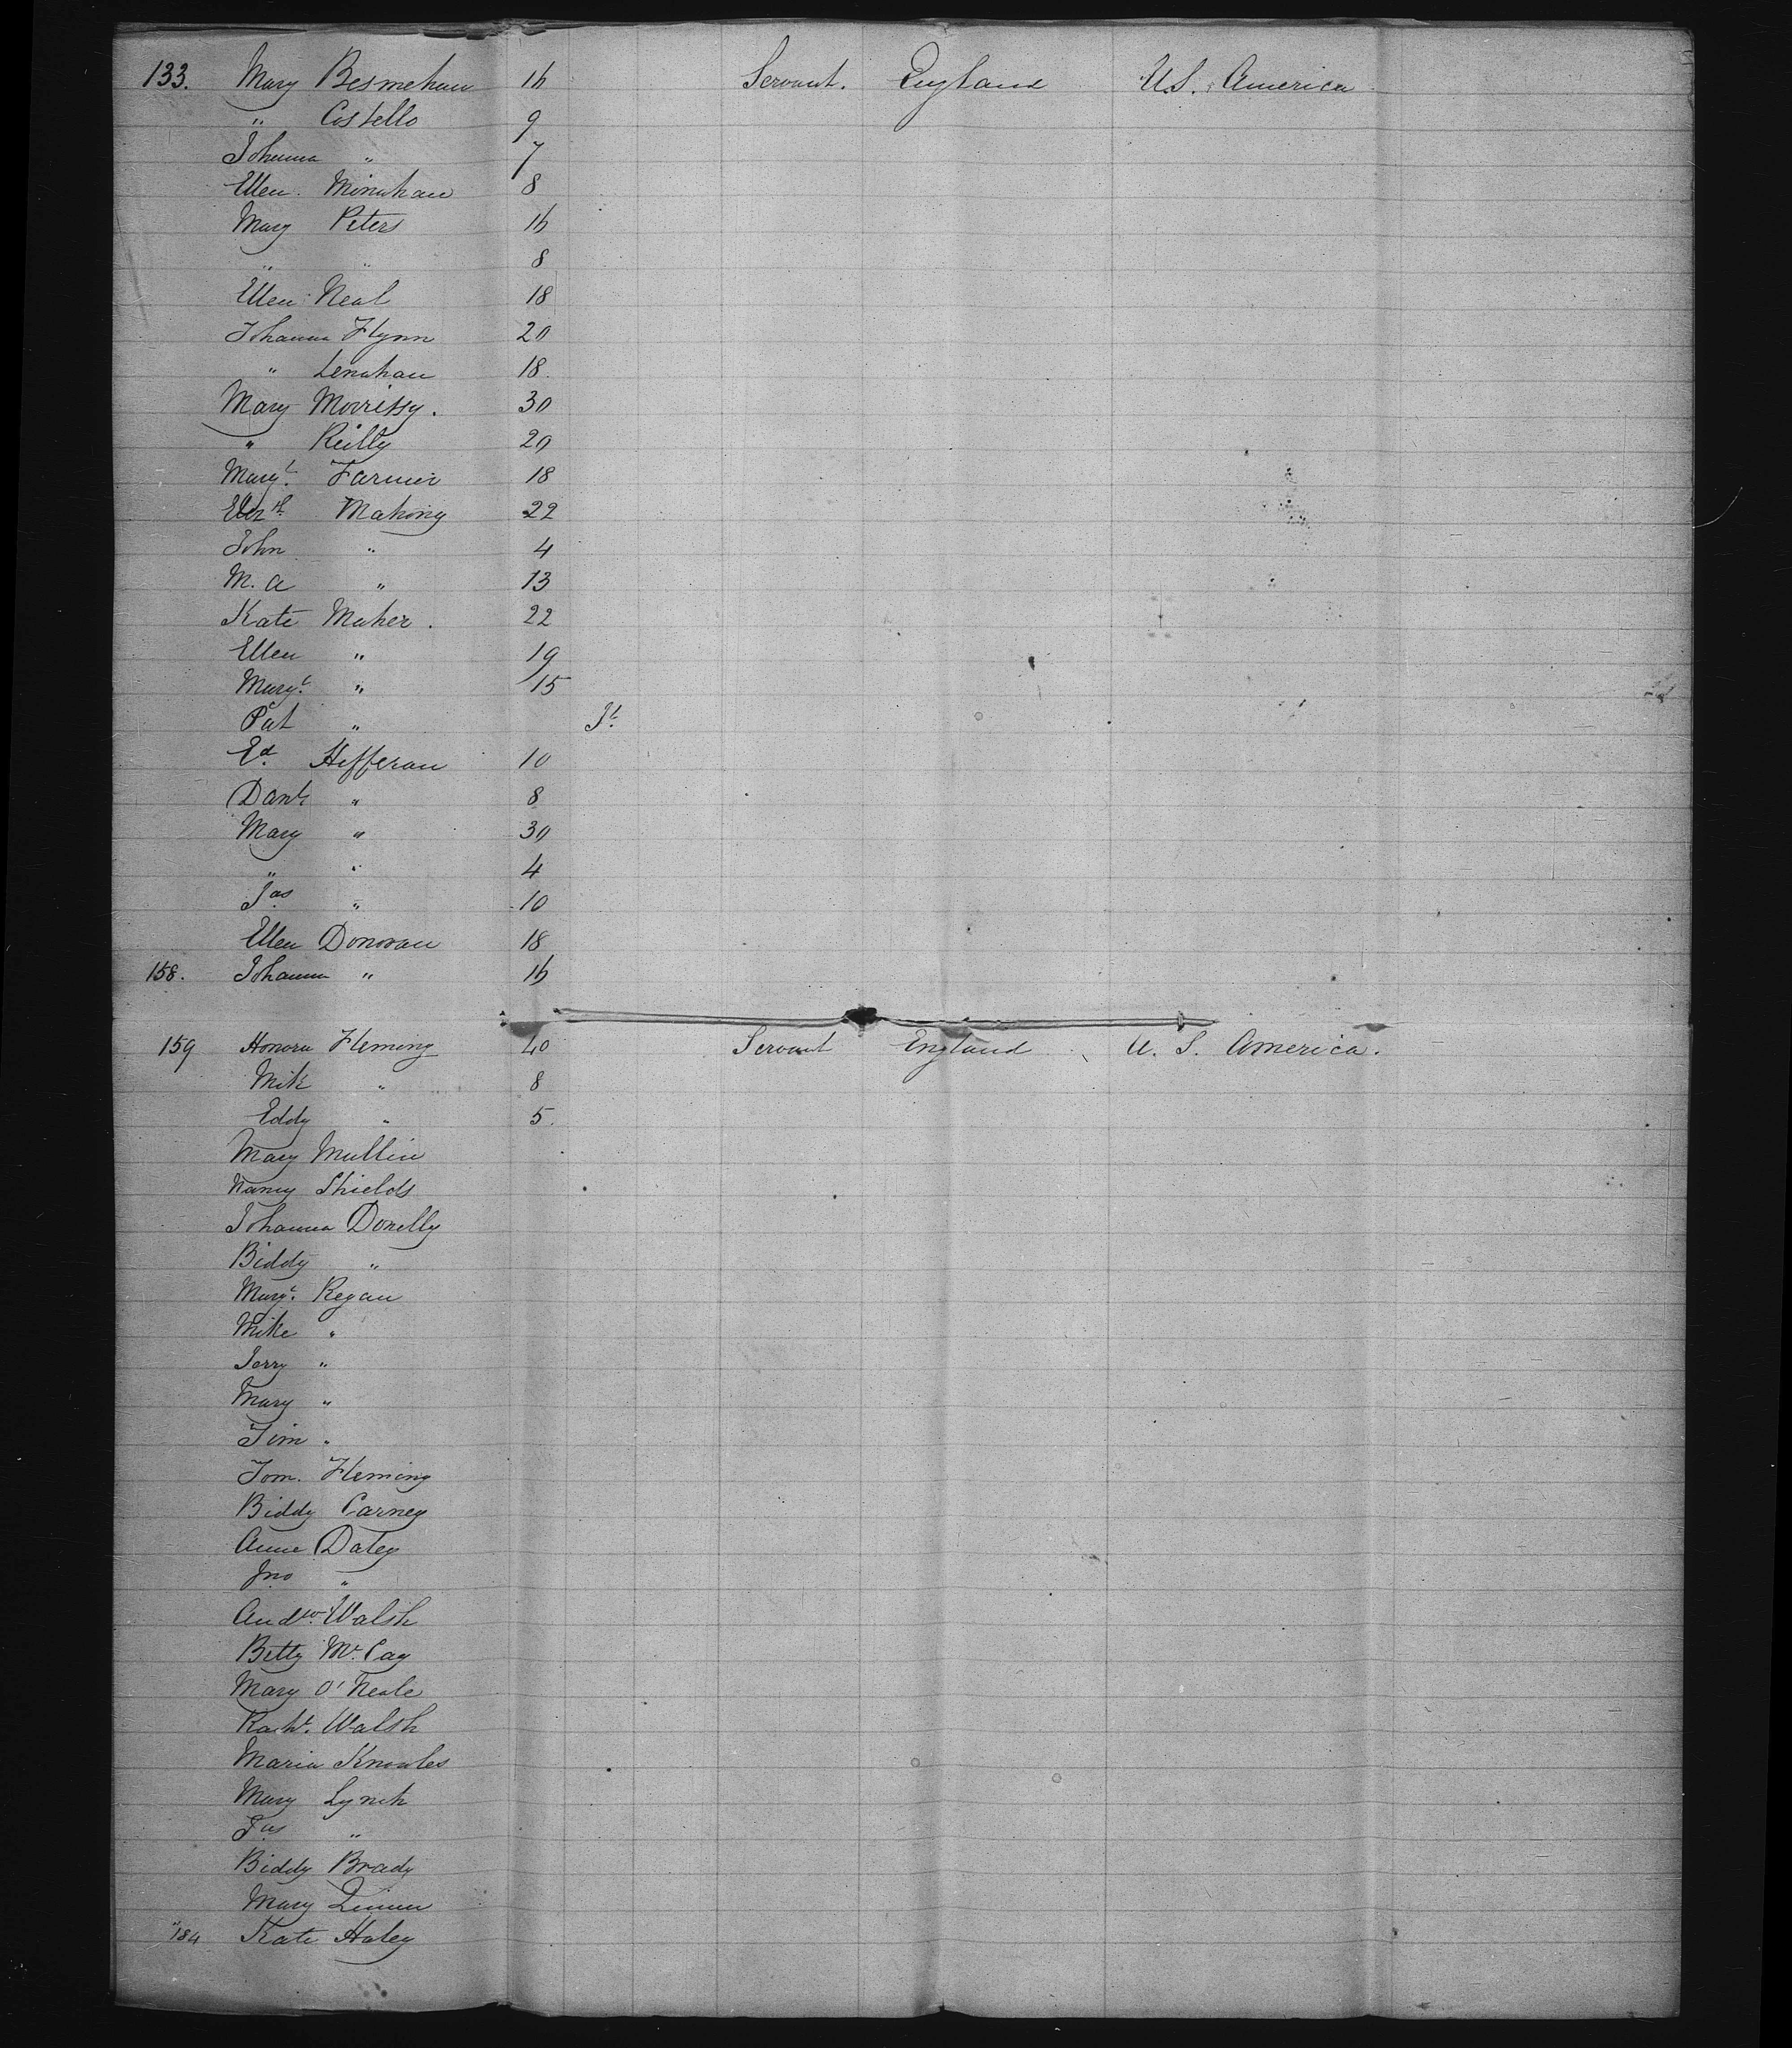 133. Mary Besmehan 16 Servant. England U.S. America
" Costello 9
Johanna " 7
Ellen Minahan 8
Mary Peters 16
" " 8
Ellen Neal 18
Johanna Flynn 20
" Lenahan 18.
Mary Morrissy. 30
" Reilly 20
Margt. Farmer 18
Elizth Mahony 22
John " 4
M. A " 13
Kate Maher. 22
Ellen " 19
Margt. " 15
Pat " It
Ed. Hefferan 10
Danl. " 8
Mary " 30
" " 4
Jas " 10
Ellen Donovan 18
158. Johanna " 16
159 Honora Fleming 40 Servant England U. S. America.
Mik " 8
Eddy " 5.
Mary Mullin
Nancy Shields
Johanna Donelly
Biddy "
Margt. Regan
Mike "
Jerry "
Mary "
Tim "
Tom. Fleming
Biddy Carney
Anne Daley
Jno "
Andw. Walsh
Betty Mc. Cay
Mary O'Neale
Walsh
Maria Knowles
Mary Lynch
Jas "
Biddy Brady
Mary Quinn
" 184 Kate Haley